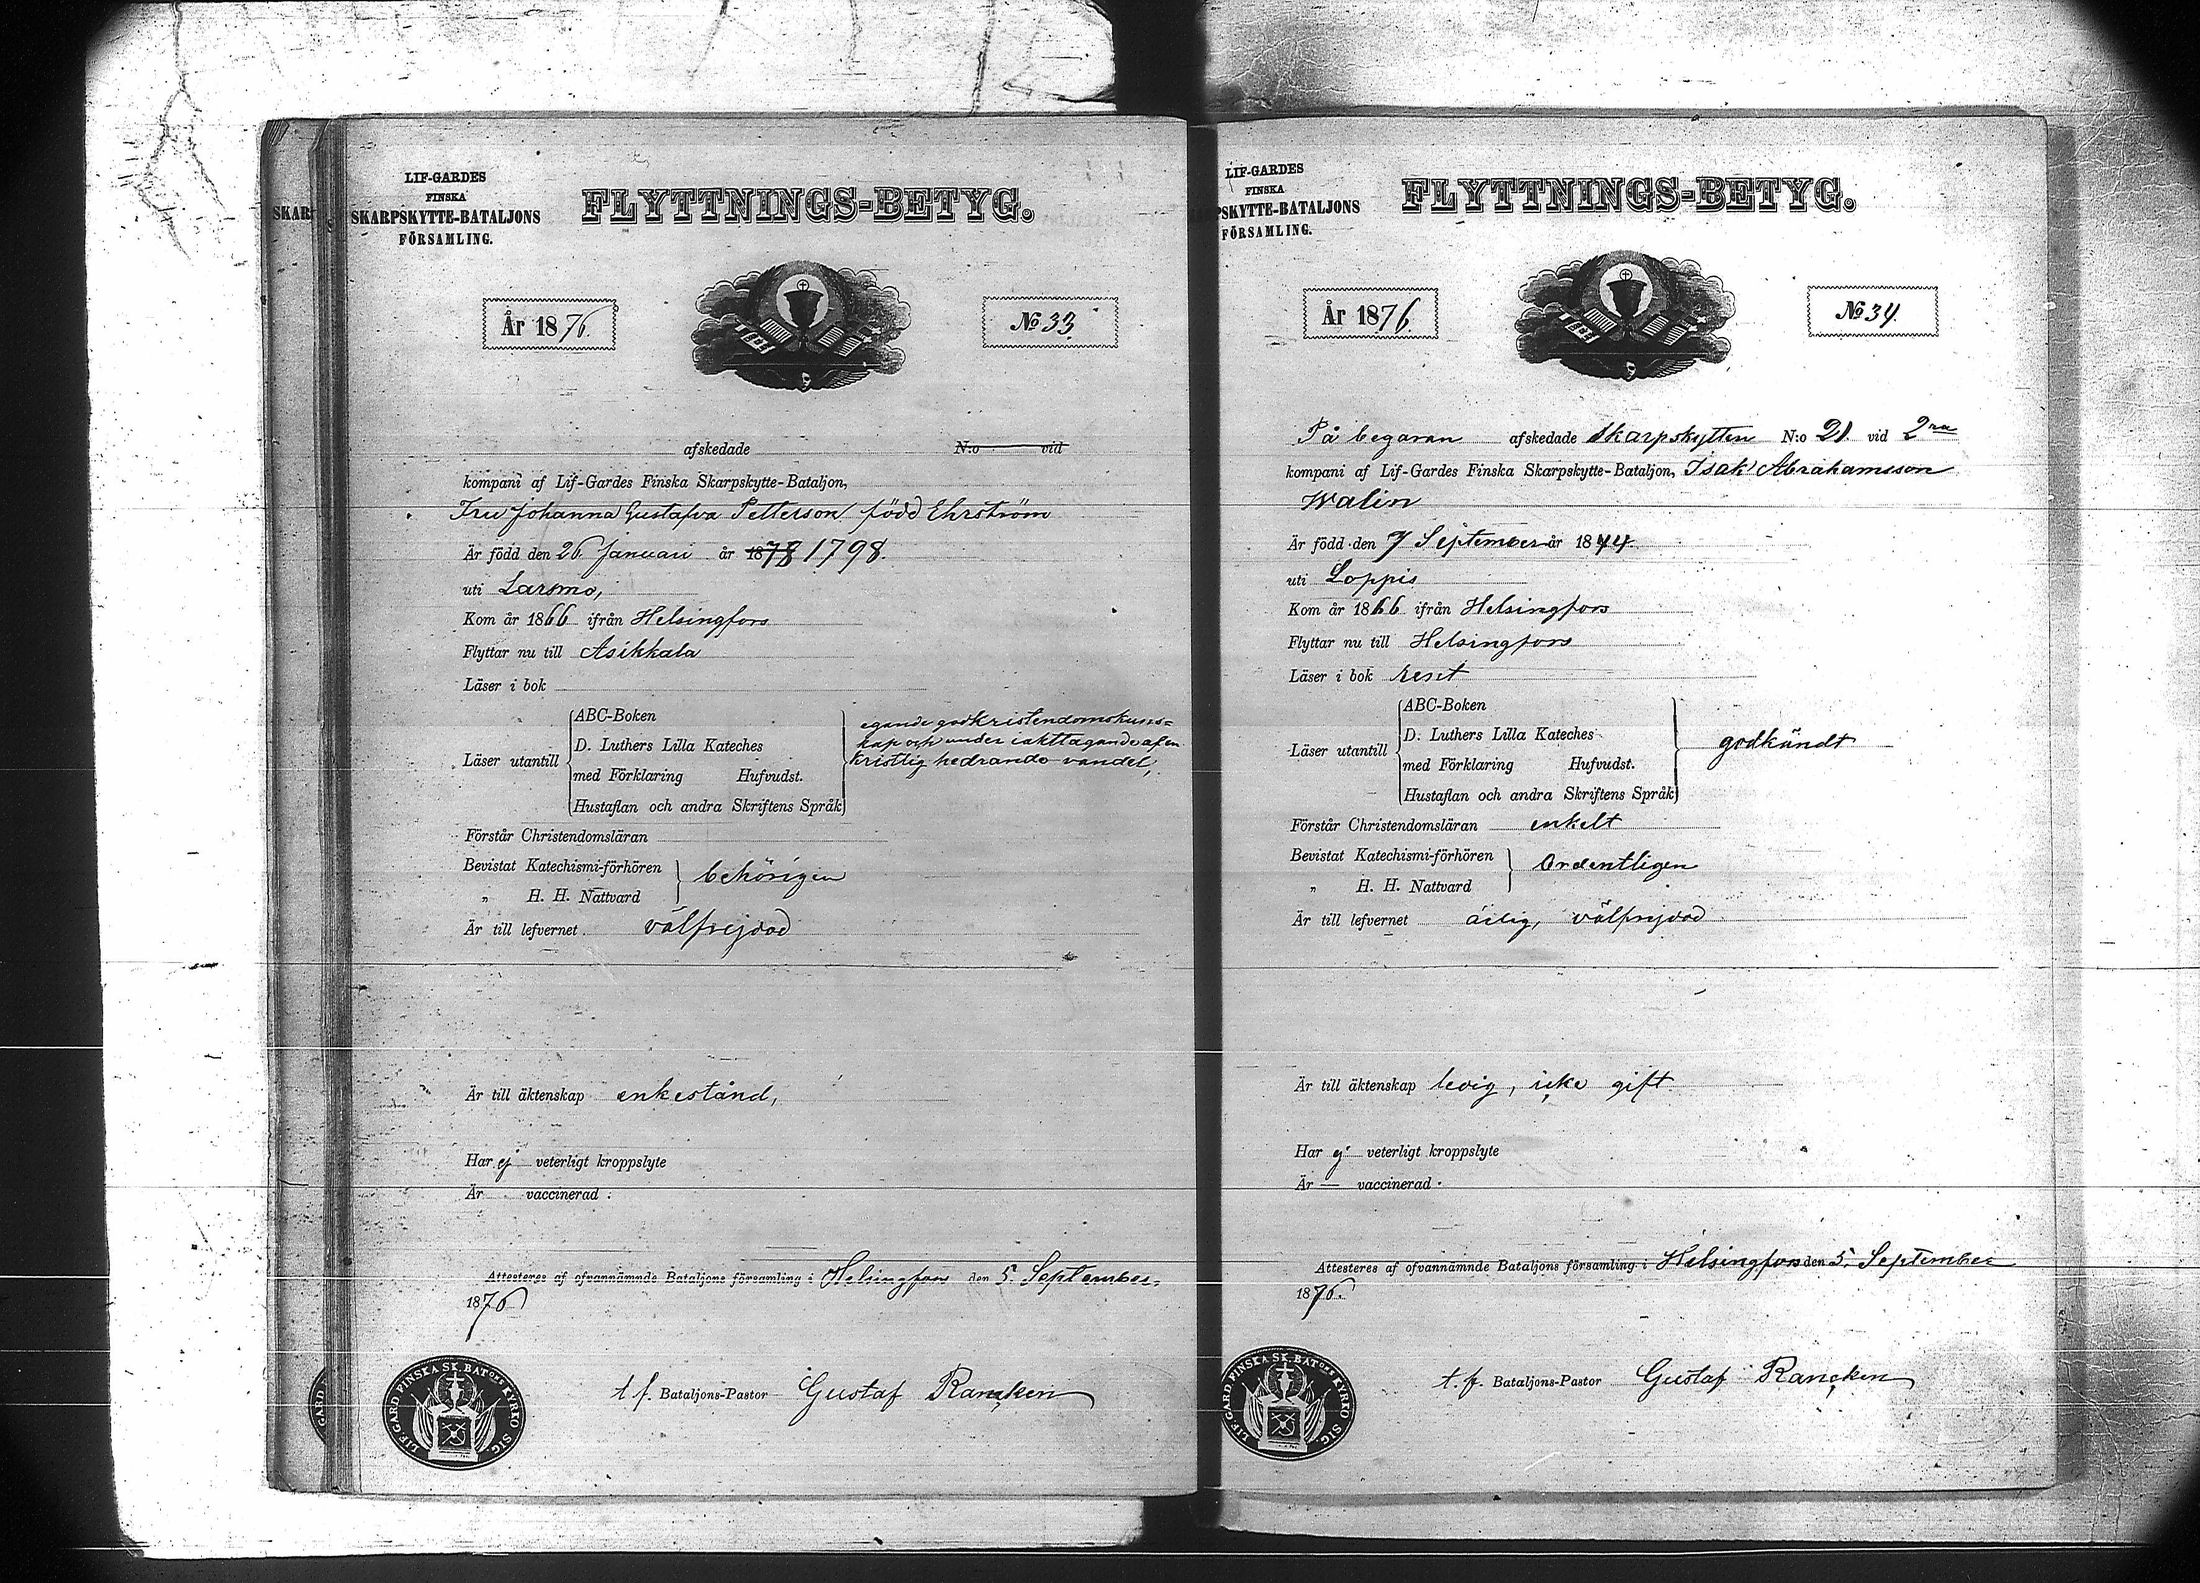 SKAR
LIF-GARDES
FINSKA
SKARPSKYTTE-BATALJONS
FÖRSAMLING.
FLYTTNINGS-BETYG.
År 1876.
No 33
afskedade N:o vid
kompani af Lif-Gardes Finska Skarpskytte-Bataljon,
Fru Johanna Gustafva Petterson född Ehrström
Är född den 26 Januari år 1878 1798.
uti Larsmo,
Kom år 1866 ifrån Helsingfors
Flyttar nu till Asikkala
Läser i bok
Läser utantill
ABC-Boken
D. Luthers Lilla Kateches
med Förklaring Hufvudst.
Hustaflan och andra Skriftens Språk
egande god kristendomskuns=
kap och under iakttagande af en
kristlig hedrande vandel,
Förstår Christendomsläran
Bevistat Katechismi-förhören
„ H. H. Nattvard
behörigen
Är till lefvernet välfrejdad
Är till äktenskap enkestånd,
Har ej veterligt kroppslyte
Är vaccinerad
Attesteres af ofvannämnde Bataljons församling i Helsingfors den 5. September
1876
t. f. Bataljons-Pastor Gustaf Rancken
LIF. GARD FINSKA SK. BATONS KYRKO SIG.
LIF-GARDES
FINSKA
PSKYTTE-BATALJONS
FÖRSAMLING.
FLYTTNINGS-BETYG.
År 1876.
No 34.
På begäran afskedade Skarpskytten N:o 21. vid 2ra
kompani af Lif-Gardes Finska Skarpskytte-Bataljon, Isak Abrahamsson
Walin
Är född den 7 September år 1844.
uti Loppis
Kom år 1866 ifrån Helsingfors
Flyttar nu till Helsingfors
Läser i bok
Läser utantill
ABC-Boken
D. Luthers Lilla Kateches
med Förklaring Hufvudst.
Hustaflan och andra Skriftens Språk
godkändt
Förstår Christendomsläran enkelt
Bevistat Katechismi-förhören
„ H. H. Nattvard
Ordentligen
Är till lefvernet ärlig, välfrejdad
Är till äktenskap ledig, icke gift
Har ej veterligt kroppslyte
Är — vaccinerad
Attesteres af ofvannämnde Bataljons församling i Helsingfors den 5. September
1876.
t. f. Bataljons-Pastor Gustaf Rancken
LIF. GARD FINSKA SK. BATONS KYRKO SIG.